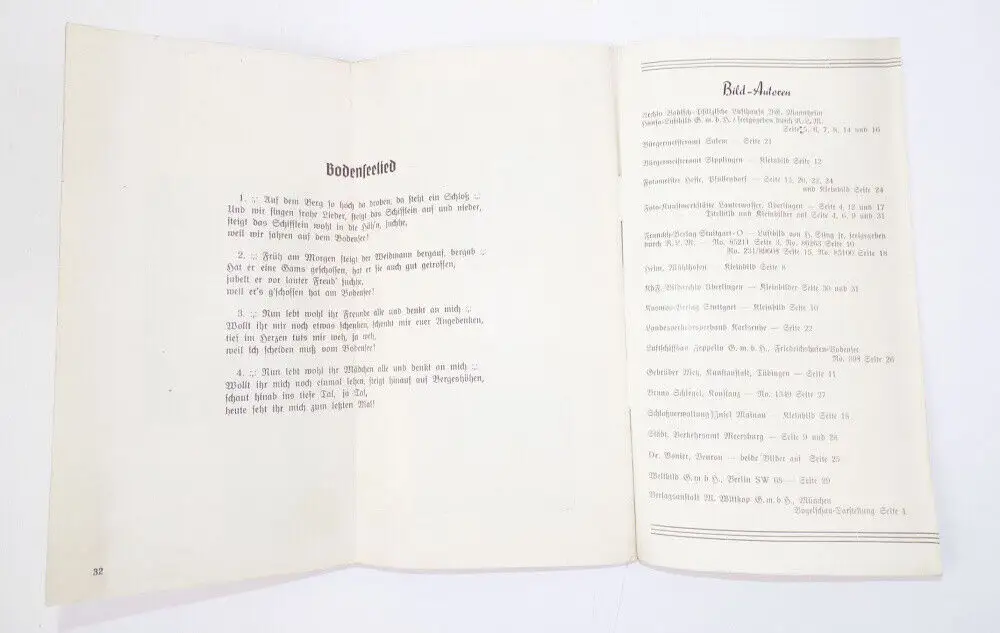 Bodenseelied
1. :,: Auf dem Berg so hoch da droben, da steht ein Schloß :,:
Und wir singen frohe Lieder, steigt das Schifflein auf und nieder,
steigt das Schifflein wohl in die Höh'n, juchhe,
weil wir fahren auf dem Bodensee!
2. :,: Früh am Morgen steigt der Weidmann bergauf, bergab :,:
Hat er eine Gams geschossen, hat er sie auch gut getroffen,
jubelt er vor lauter Freud' juchhe,
weil er's g'schossen hat am Bodensee!
3. :,: Nun lebt wohl ihr Freunde alle und denkt an mich :,:
Wollt ihr mir noch etwas schenken, schenkt mir euer Angedenken,
tief im Herzen tuts mir weh, ja weh,
weil ich scheiden muß vom Bodensee!
4. :,: Nun lebt wohl ihr Mädchen alle und denkt an mich :,:
Wollt ihr mich noch einmal sehen, steigt hinauf auf Bergeshöhen,
schaut hinab ins tiefe Tal, ja Tal,
heute seht ihr mich zum letzten Mal!
32
Bild-Autoren
Archiv Badisch-Pfälzische Lufthansa AG. Mannheim
Hansa-Luftbild G. m. b. H. / freigegeben durch R. L. M.
Seite 5, 6, 7, 8, 14 und 16
Bürgermeisteramt Salem — Seite 21
Bürgermeisteramt Sipplingen — Kleinbild Seite 12
Fotomeister Hesse, Pfullendorf — Seite 13, 20, 23, 24
und Kleinbild Seite 24
Foto-Kunstwerkstätte Lauterwasser, Überlingen — Seite 4, 12 und 17
Titelbild und Kleinbilder auf Seite 4, 6, 9 und 31
Franckh-Verlag Stuttgart-O — Luftbild von H. Sting jr. freigegeben
durch R. L. M. — No. 85211 Seite 3, No. 86263 Seite 10
No. 231/89608 Seite 15, No. 85100 Seite 18
Heim, Mühlhofen — Kleinbild Seite 8
KdF.-Bildarchiv Überlingen — Kleinbilder Seite 30 und 31
Kosmos-Verlag Stuttgart — Kleinbild Seite 10
Landesverkehrsverband Karlsruhe — Seite 22
Luftschiffbau Zeppelin G. m. b. H., Friedrichshafen-Bodensee
No. 898 Seite 26
Gebrüder Metz, Kunstanstalt, Tübingen — Seite 11
Bruno Schlegel, Konstanz — No. 1349 Seite 27
Schloßverwaltung Insel Mainau — Kleinbild Seite 18
Städt. Verkehrsamt Meersburg — Seite 9 und 28
Dr. Beuron — beide Bilder auf Seite 25
Weltbild G. m. b. H., Berlin SW 68 — Seite 29
Verlagsanstalt M. Wittkop G. m. b. H., München
Vogelschau-Darstellung Seite 1